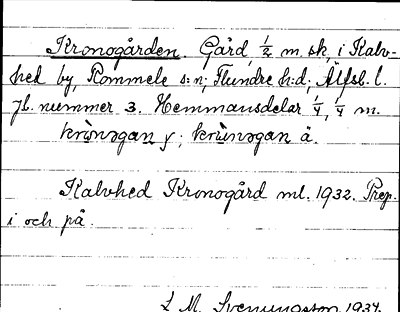 Kronogården. Gård, 1/2 m. sk, i Kalv-
hed by, Rommele s:n; Flundre h:d; Älfsb. l.
Jb. nummer 3. Hemmansdelar 1/4, 1/4 m.
krònəgan y; krùnəgan ä.
Kalvhed Kronogård ml. 1932. Prep.
i och på.
L. M. Svenungsson 1934.